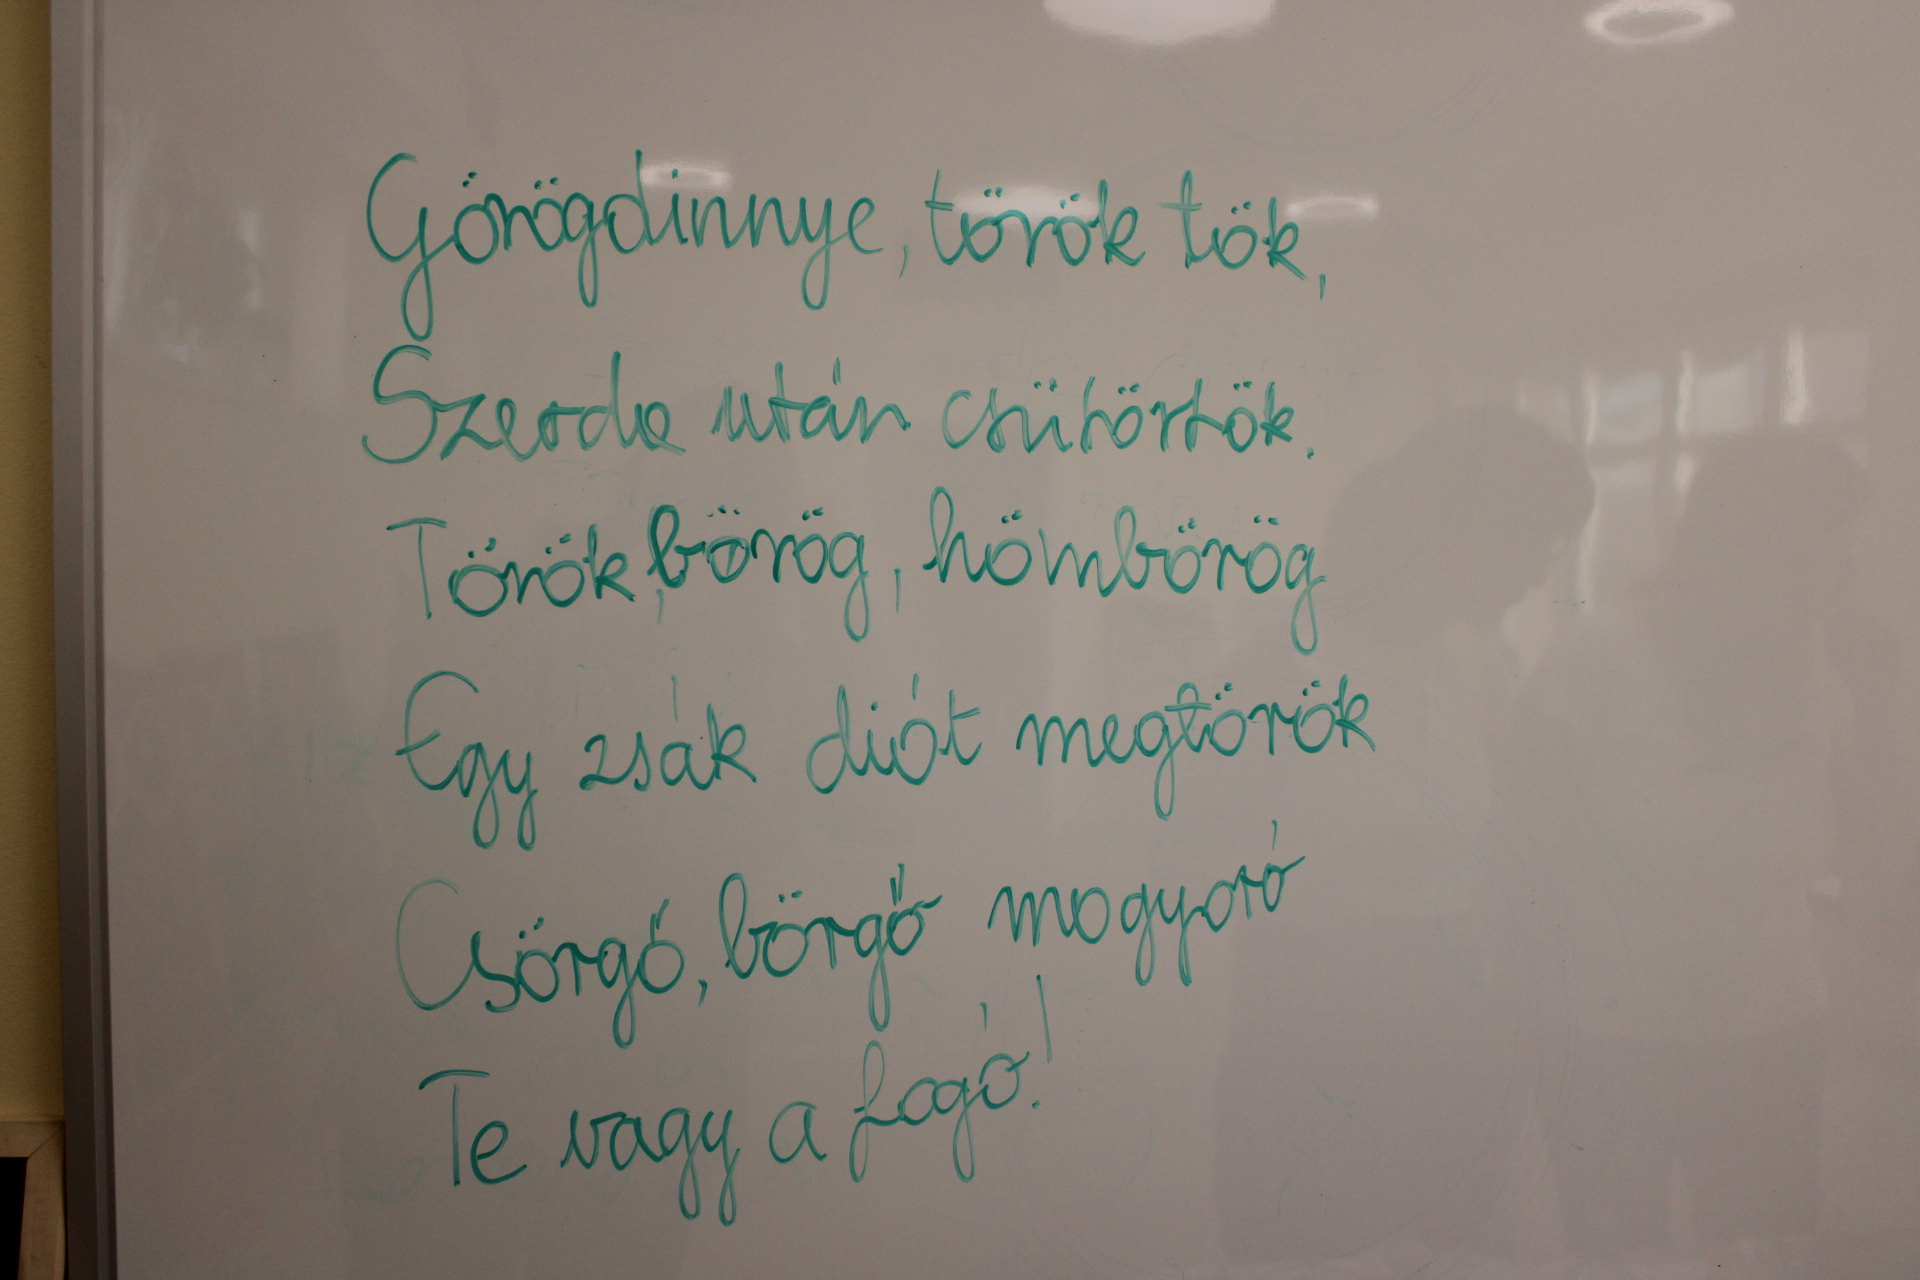 Görögdinnye, török tök,
Szerda után csütörtök.
Török, börög, hömbörög
Egy zsák diót megtörök
Csörgő, börgő mogyoró
Te vagy a fogó!